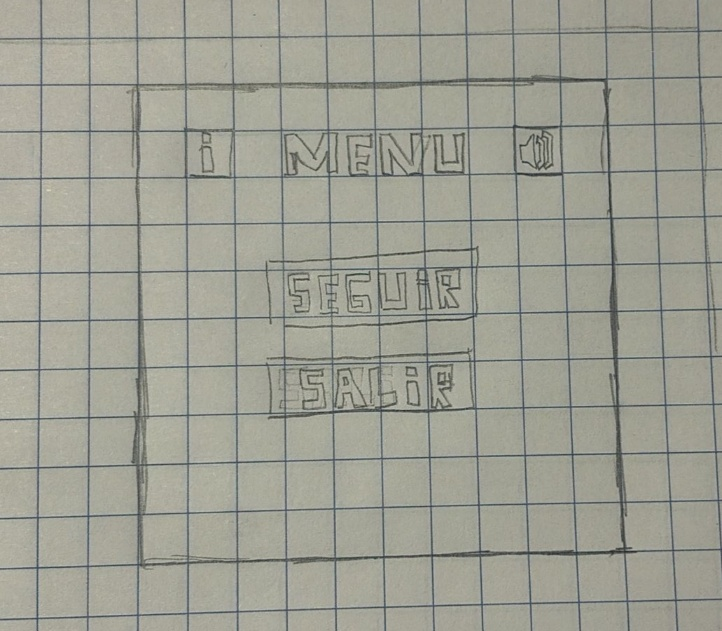 i MENU
SEGUiR
SALiR